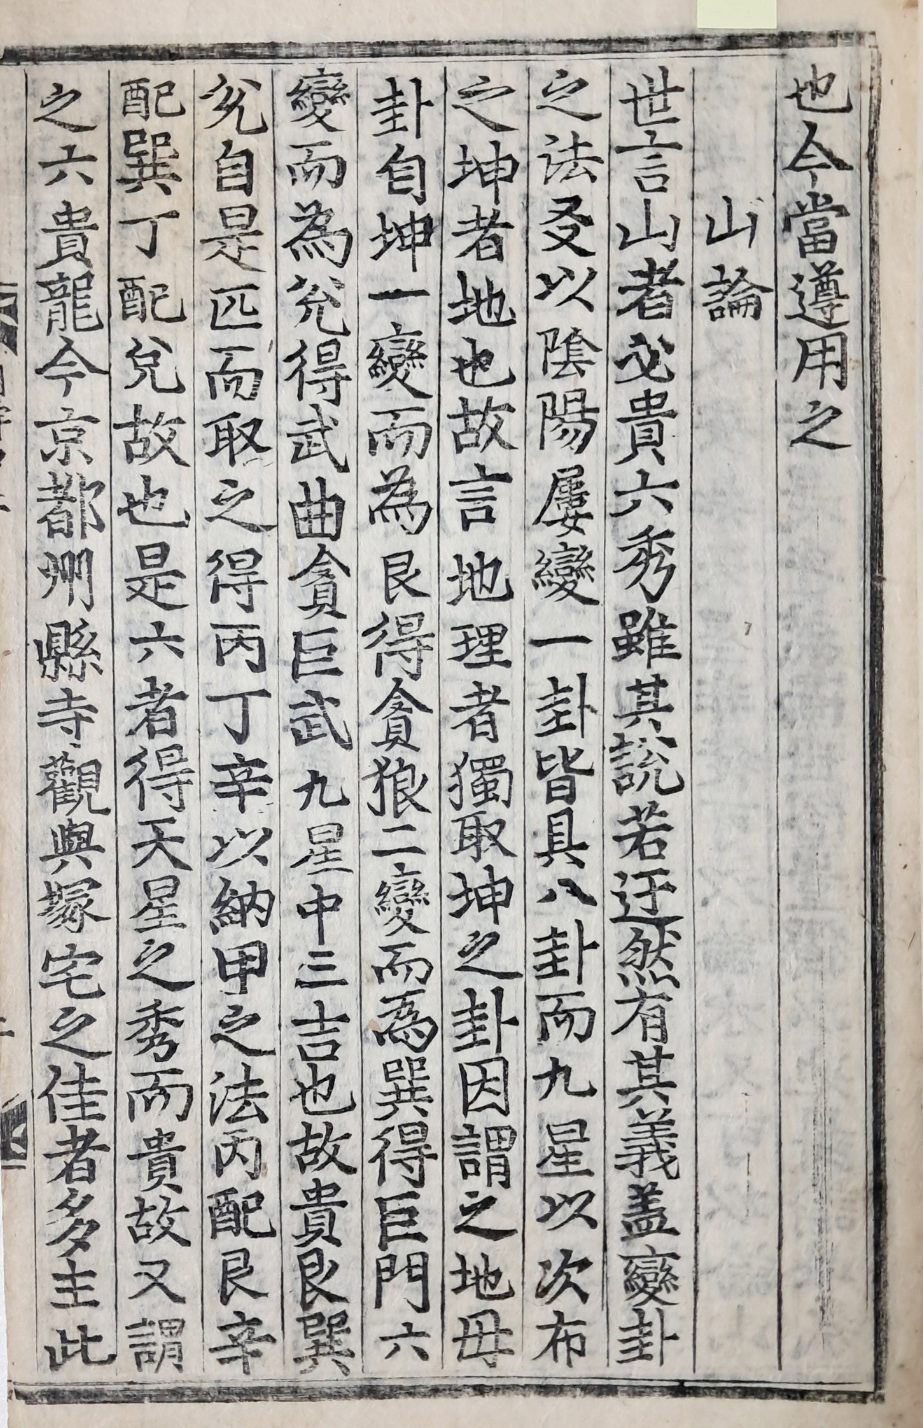 也今當遵用之
山論
世言山者必貴六秀雖其說若迂然有其義盖變卦
之法及以陰陽屢變一卦皆具八卦而九星以次布
之坤者地也故言地理者獨取坤之卦因謂之地母
卦自坤一變而為艮得貪狼二變而為巽得巨門六
變而為兊得武曲貪巨武九星中三吉也故貴艮巽
兊自是匹而取之得丙丁辛以納甲之法丙配艮辛
配巽丁配兊故也是六者得天星之秀而貴故又謂
之六貴龍今京都州縣寺觀與塚宅之佳者多主此